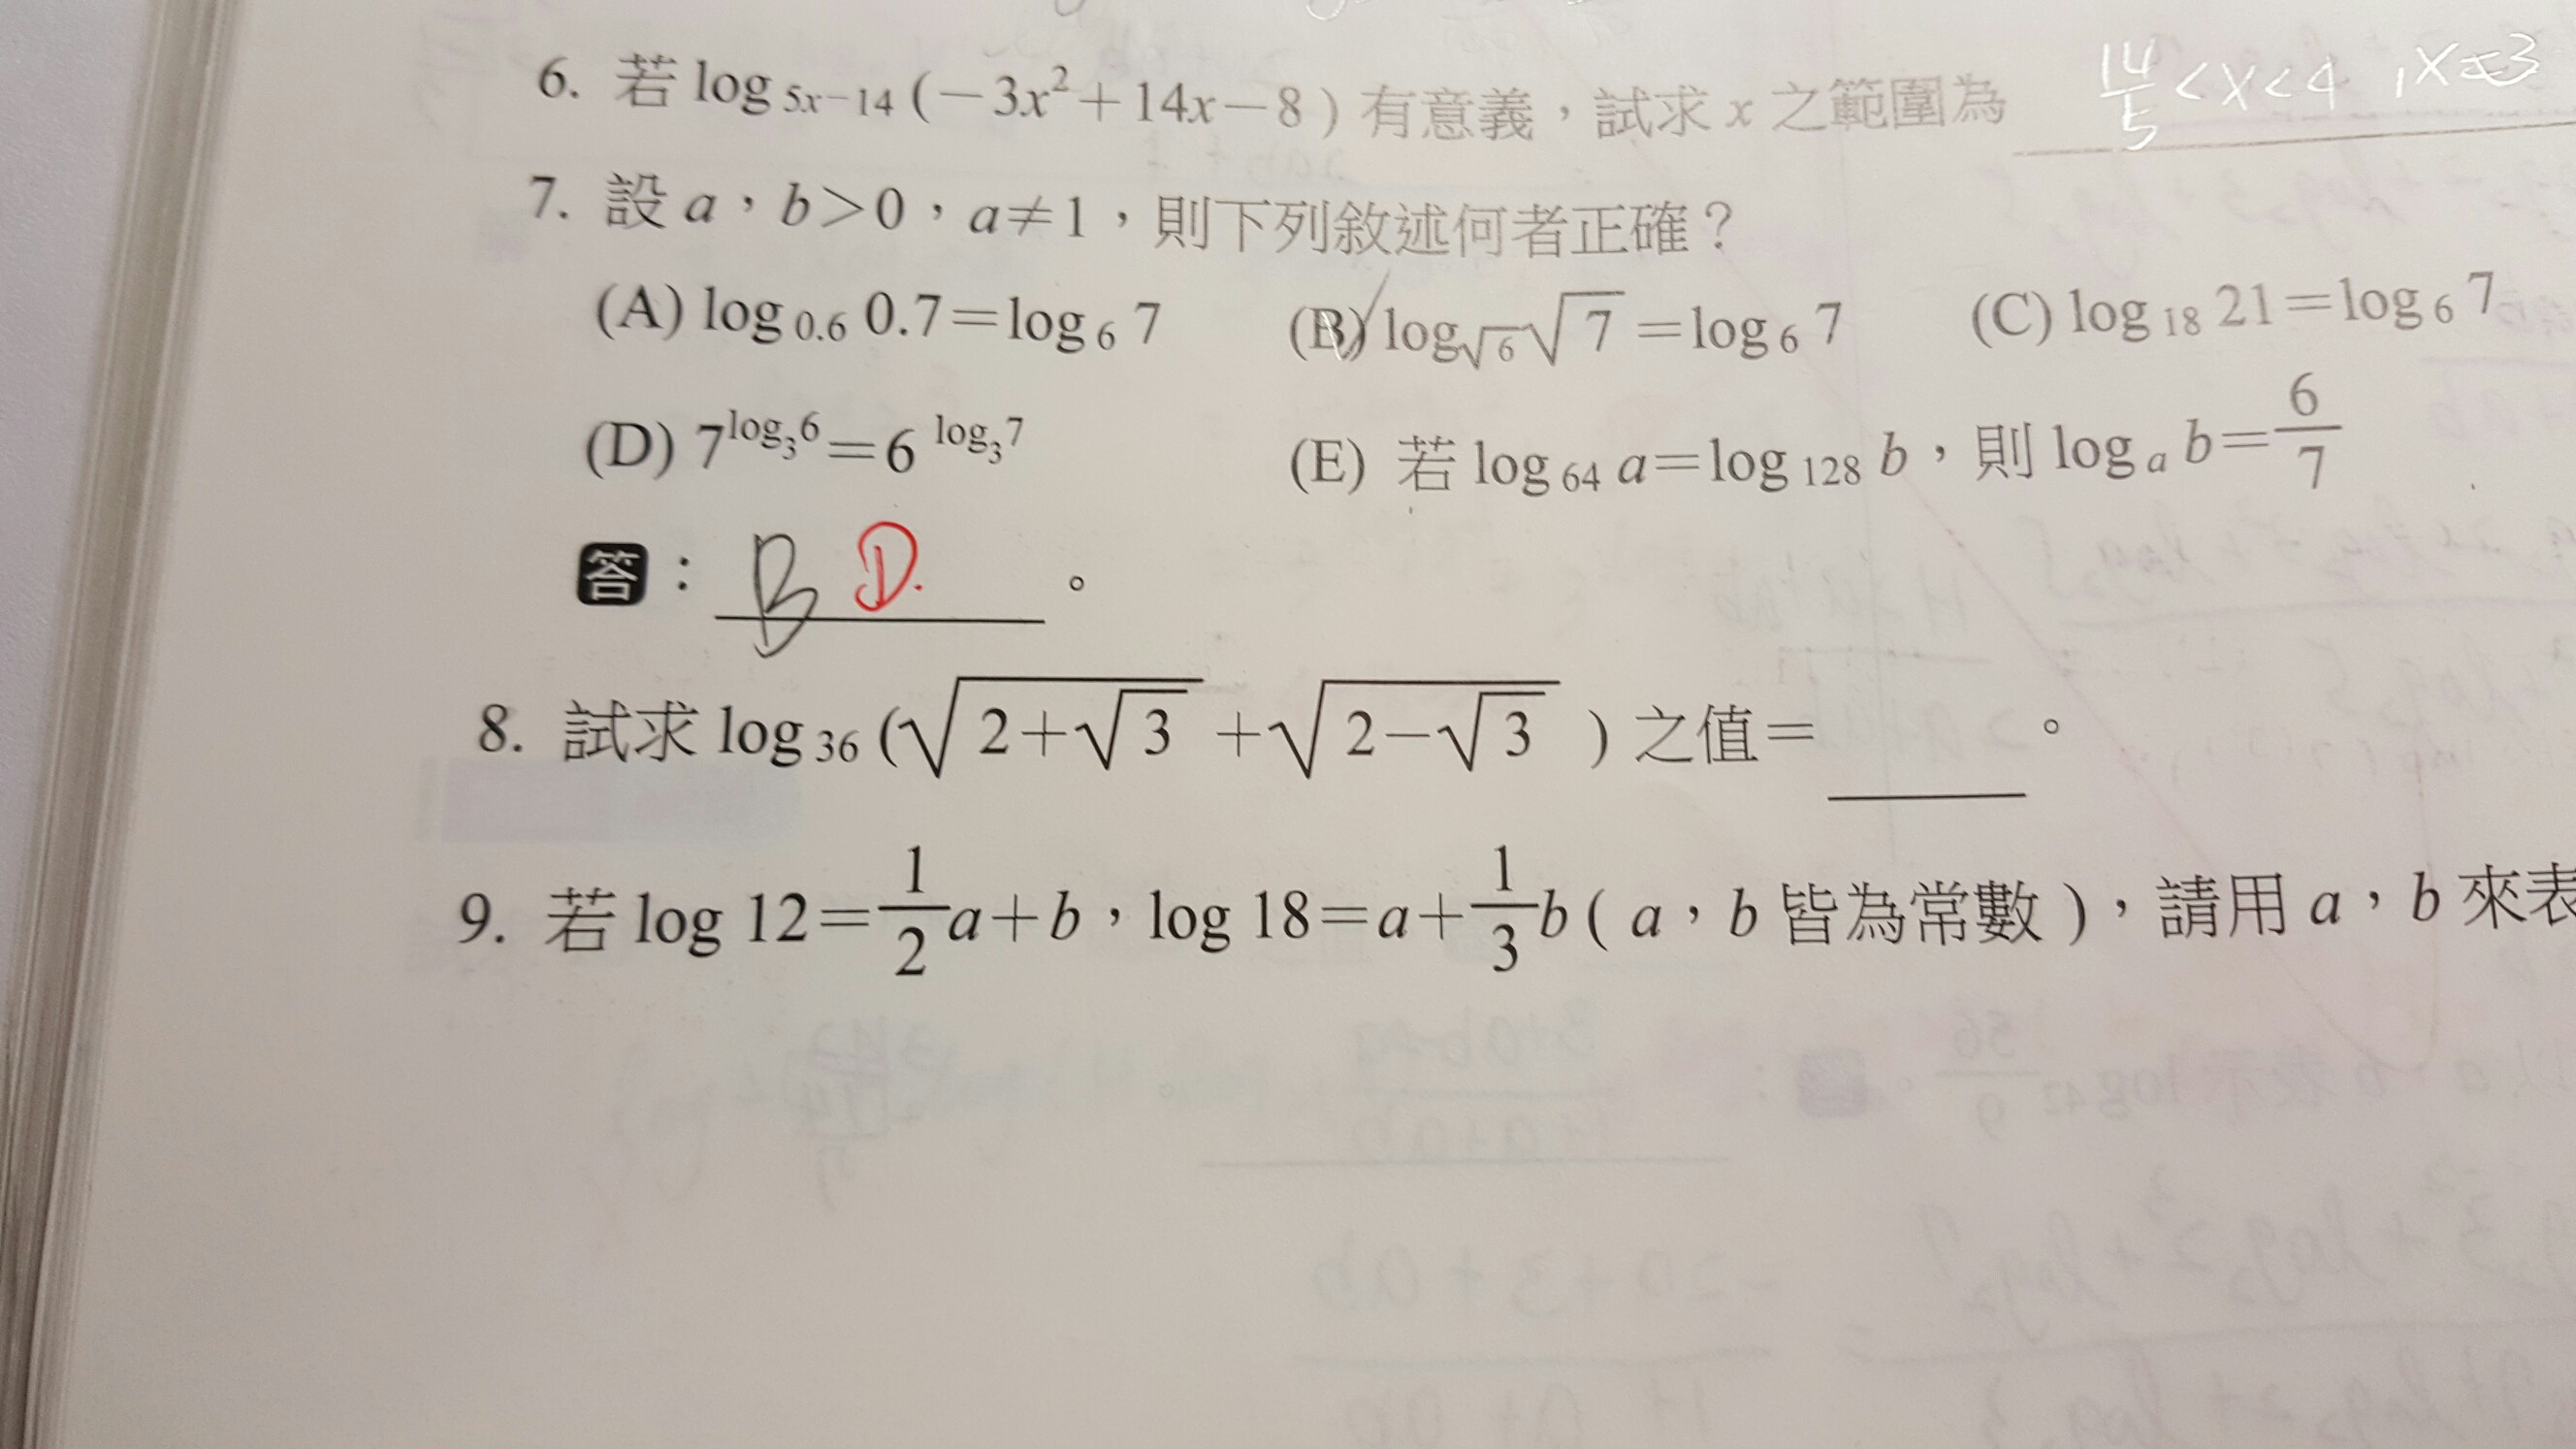 6. 若 log₅ₓ₋₁₄ (−3x²+14x−8) 有意義，試求 x 之範圍為 14/5 < x < 4 , x≠3
7. 設 a，b>0，a≠1，則下列敘述何者正確？
(A) log₀.₆ 0.7=log₆ 7 (B) log_√6 √7=log₆ 7 (C) log₁₈ 21=log₆ 7
(D) 7^(log₃6)=6^(log₃7) (E) 若 log₆₄ a=log₁₂₈ b，則 logₐ b=6/7
答： B D. 。
8. 試求 log₃₆ (√(2+√3)+√(2−√3)) 之值=____。
9. 若 log 12=1/2a+b，log 18=a+1/3b( a，b 皆為常數 )，請用 a，b 來表